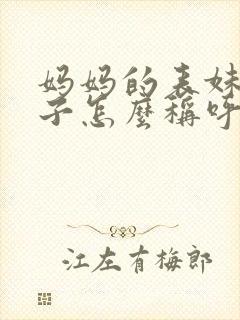 妈妈的表妹
子怎麽稱呼
江左有梅郎